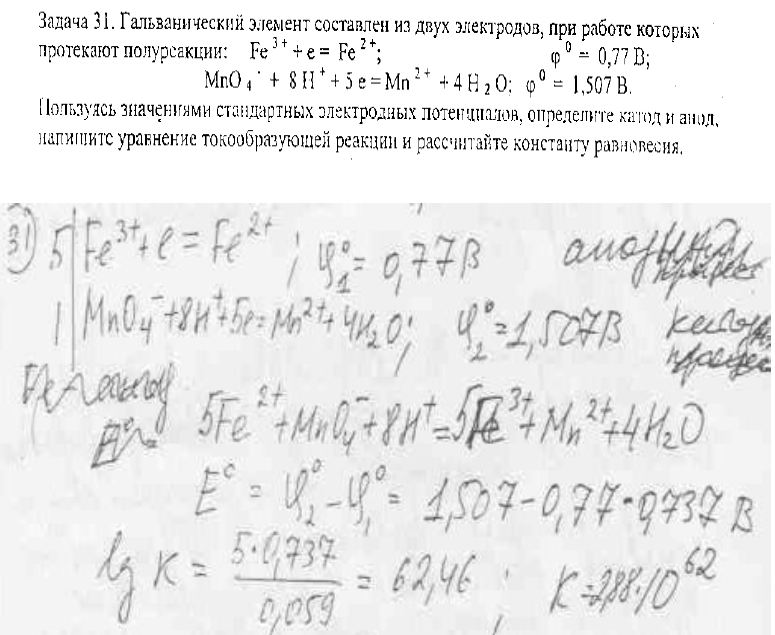 Задача 31. Гальванический элемент составлен из двух электродов, при работе которых
протекают полуреакции: Fe ³⁺ + e = Fe ²⁺; φ⁰ = 0,77 В;
MnO₄⁻ + 8 H⁺ + 5 e = Mn²⁺ + 4 H₂O; φ⁰ = 1,507 В.
Пользуясь значениями стандартных электродных потенциалов, определите катод и анод,
напишите уравнение токообразующей реакции и рассчитайте константу равновесия.
31) 5 | Fe³⁺ + e = Fe²⁺ ; φ₁⁰ = 0,77 В анодный процесс
1 | MnO₄⁻ + 8H⁺ + 5e = Mn²⁺ + 4H₂O; φ₂⁰ = 1,507 В катодн процесс
Fe - анод
5Fe²⁺ + MnO₄⁻ + 8H⁺ = 5Fe³⁺ + Mn²⁺ + 4H₂O
E⁰ = φ₂⁰ - φ₁⁰ = 1,507 - 0,77 = 0,737 В
lg K = 5·0,737 / 0,059 = 62,46 ; K = 2,88·10⁶²